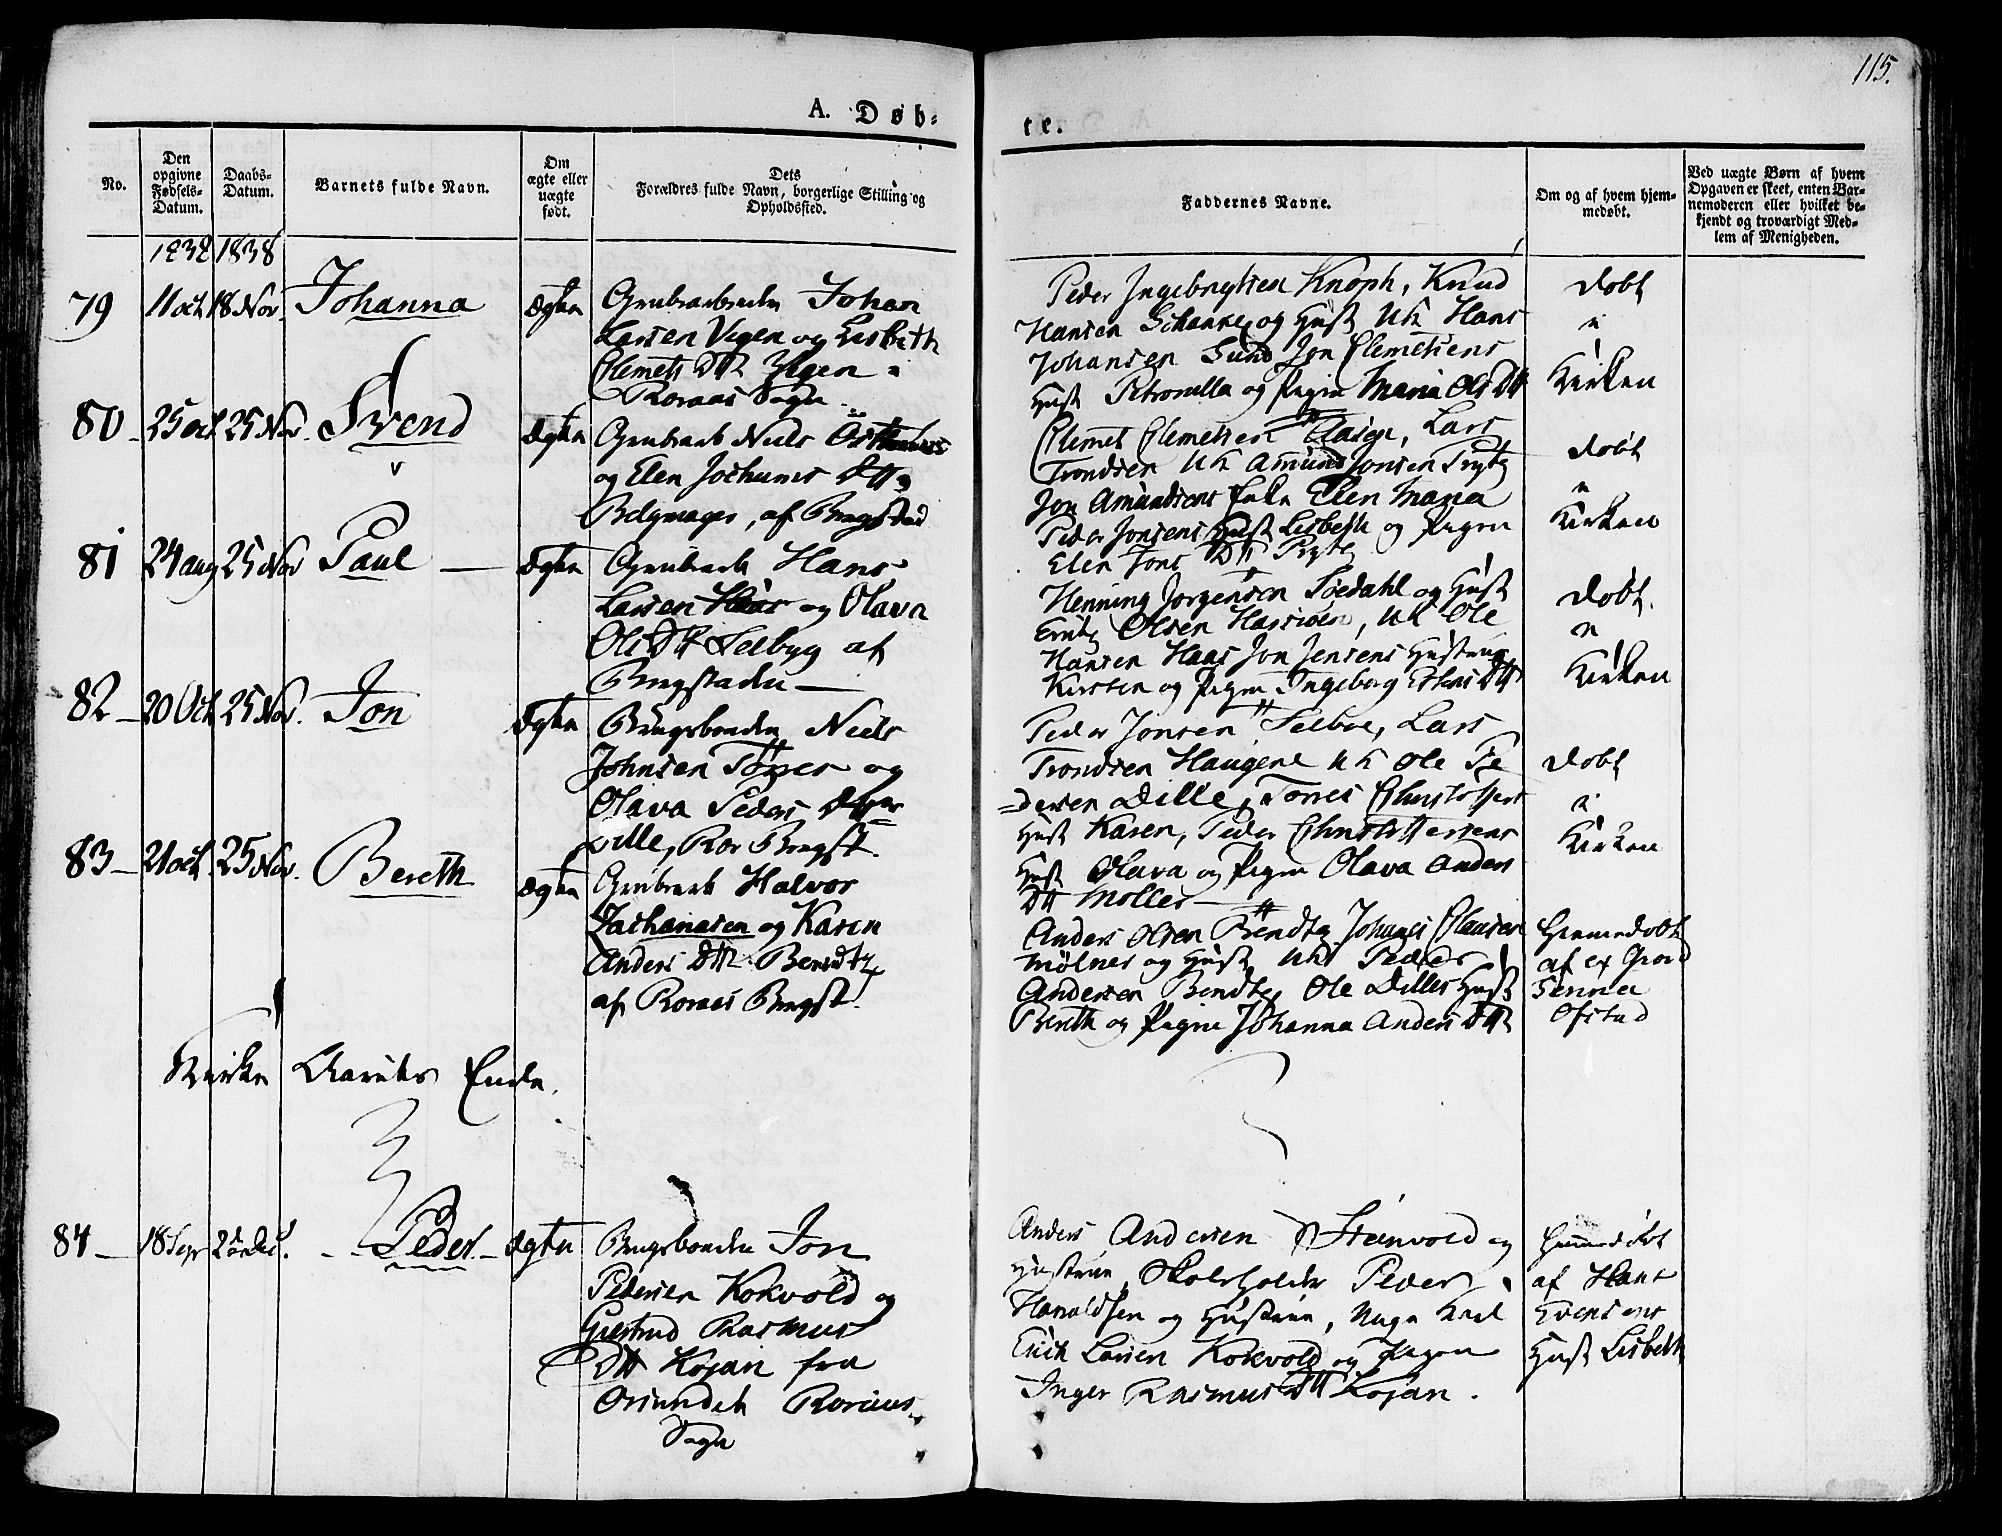 115.
A. Døb-
te.
No.
Den opgivne Fødsels-Datum.
Daabs-Datum.
Barnets fulde Navn.
Om ægte eller uægte født.
Dets Forældres fulde Navn, borgerlige Stilling og Opholdssted.
Faddernes Navne.
Om og af hvem hjemmedøbt.
Ved uægte Børn af hvem Opgaven er skeet, enten Barnemoderen eller hvilket bekjendt og troværdigt Medlem af Menigheden.
1838 1838
79 11 Oct 18 Nov. Johanna ægte
Grubearbeider Johan
Larsen Vigen og Lisbeth
Clemets Dtr Vigen
Roraas Sogn
Peder Ingebrigtsen Knoph, Knud
Hansen Schanke og Hust Uk Hans
Johansen Sund Jon Clemetsens
Hust Petronella og Pigen Maria Ols Dtr
Døbt
i
Kirken
80 25 Oct 25 Nov Svend ægte
Grubearb Niels
og Elen Jochums Dtr
af Bergstad
Clemet Clemetsen Lars
Trondsen Uk Amund Jonsen Tryte
Jon Amundsens Enke Elen Maria
Peder Jonsens Hust Lisbeth og Pigen
Elen Jons Dtr Tryte
Døbt
i
Kirken
81 24 Aug 25 Nov Paul ægte
Grubearb Hans
Larsen Haas og Olava
Ols Dtr Selbyg af
Bergstaden
Henning Jorgensen Soedahl og Hust
Olsen Uk Ole
Hansen Haas Jon Jensens Hustrue
Kirsten og Pigen Ingeborg Estens Dtr
Døbt.
i
Kirken
82 20 Oct 25 Nov. Jon ægte
Brugsbonden Niels
Johnsen Tørres og
Olava Peders Dtr
Dille, Ror Bergst.
Peder Jonsen Selboe, Lars
Trondsen Haugene Uk Ole Pe
dersen Dille, Tørres Christophers
Hust Karen, Peder Christophersens
Hust Olava og Pigen Olava Anders
Dtr Møller
Døbt
i
Kirken
83 21 Oct 25 Nov. Bereth ægte
Grubearb Halvor
Zachariasen og Karen
Anders Dtr Bendtz
af Roraas Bergst.
Anders Olsen Bendtz Johanes Clausen
Mølnes og Hust Uk Peder
Andersen Bendtz Ole Dilles Hust
Bereth og Pigen Johanna Anders Dtr
Hjemmedøbt
af
Ofstad
Kirke Aarets Ende.
84 18 Sepr 2den Dec. Peder ægte
Brugsbonden Jon
Pedersen Kokvold og
Giertrud Rasmus
Dtr Kojan fra
Orsundet Roraas
Sogn
Anders Andersen Steinvold og
Hustrue, Skoleholder Peder
Haraldsen og Hustrue, Unge Karl
Erich Larsen Kokvold og Pigen
Inger Rasmus Dtr Kojan.
Hjemmedøbt
af Hans
Evensens
Hust Lisbeth